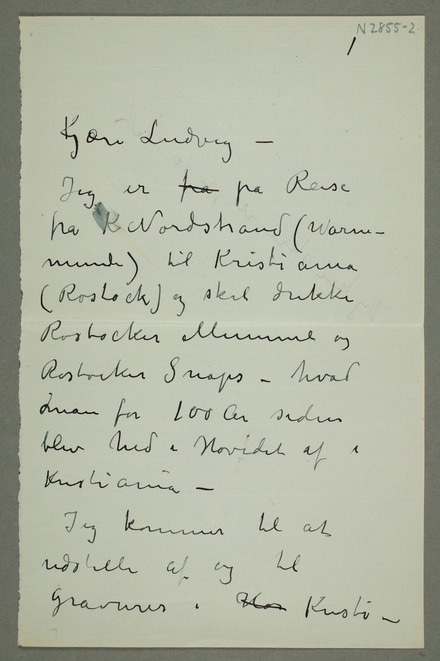 N 2855-2
1
Kjære Ludvig –
Jeg er fra på Reise
fra K Nordstrand (Warne-
münde) til Kristiania
(Rostock) og skal drikke
Rostocker Mumme og
Rostocker Snaps – hvad
man for 100 År siden
blev hed i Hovedet af i
Kristiania –
Jeg kommer til at
udstille af og til
Gravurer i Kristi–